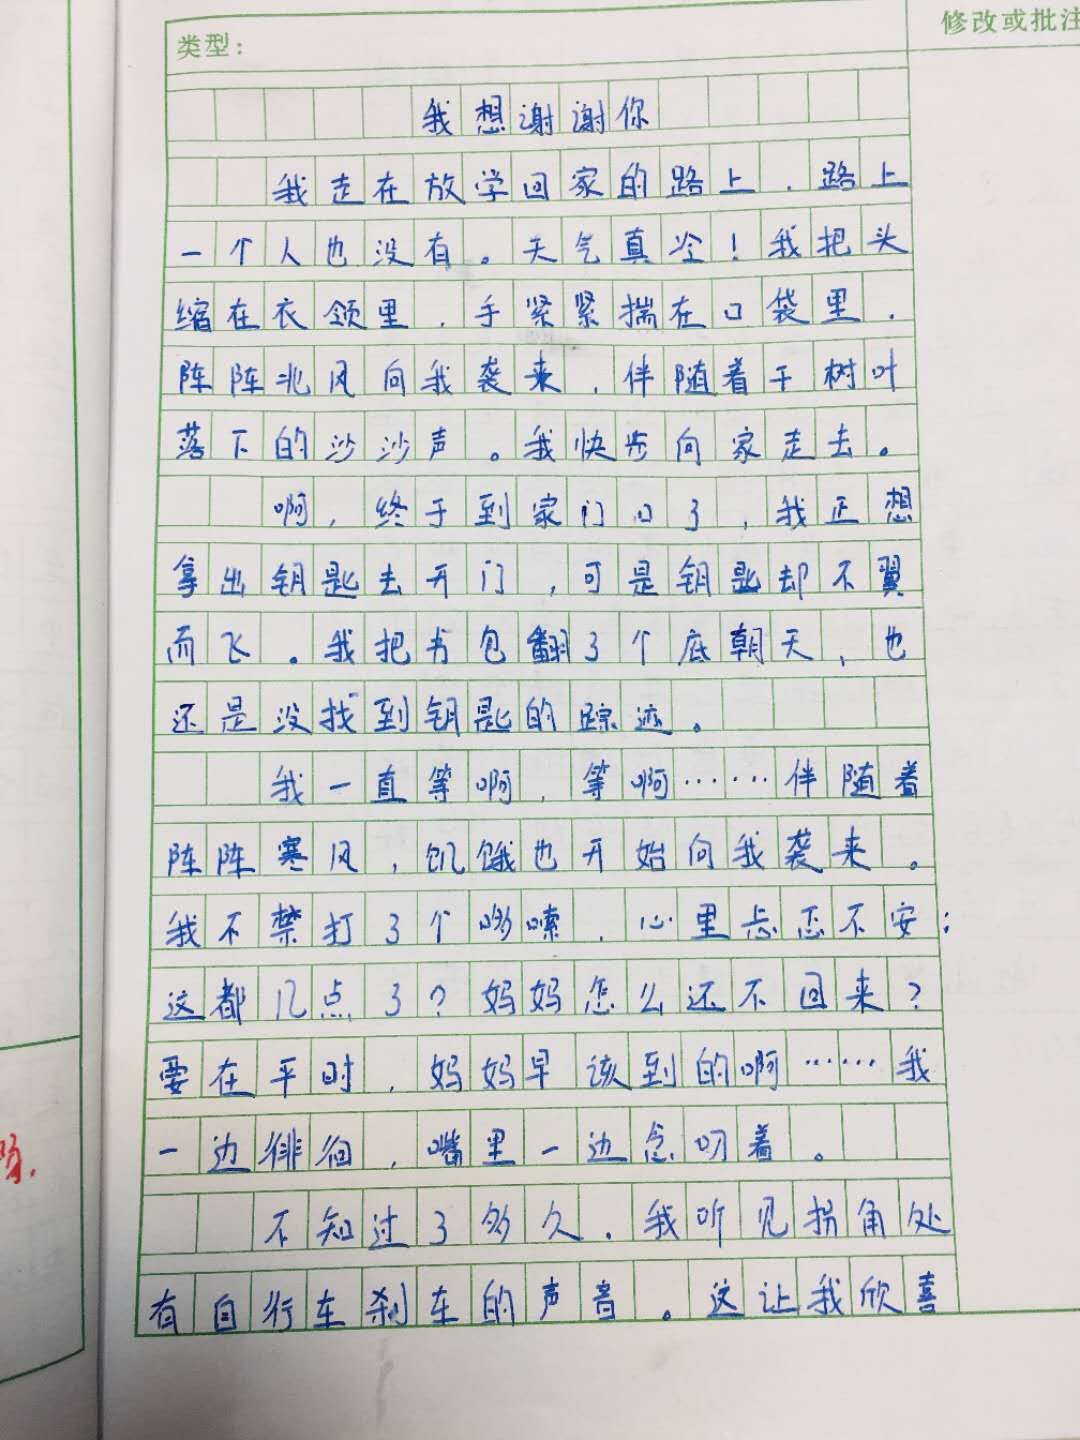 修改或批注
类型：
我想谢谢你
我走在放学回家的路上，路上
一个人也没有。天气真冷！我把头
缩在衣领里，手紧紧揣在口袋里，
阵阵北风向我袭来，伴随着干树叶
落下的沙沙声。我快步向家走去。
啊，终于到家门口了，我正想
拿出钥匙去开门，可是钥匙却不翼
而飞。我把书包翻了个底朝天，也
还是没找到钥匙的踪迹。
我一直等啊，等啊……伴随着
阵阵寒风，饥饿也开始向我袭来。
我不禁打了个哆嗦，心里忐忑不安：
这都几点了？妈妈怎么还不回来？
要在平时，妈妈早该到的啊……我
一边徘徊，嘴里一边念叨着。
不知过了多久，我听见拐角处
有自行车刹车的声音。这让我欣喜